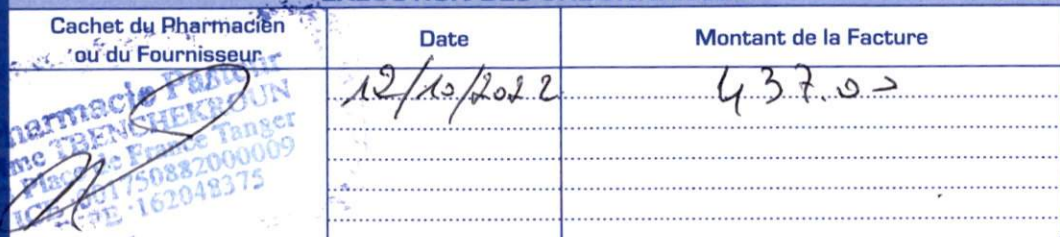 Cachet du Pharmacien
ou du Fournisseur
Date
Montant de la Facture
12/10/2022
437.00
Pharmacie Pasteur
Mme TBENCHEKROUN
Place de France Tanger
ICE 001750882000009
162048375